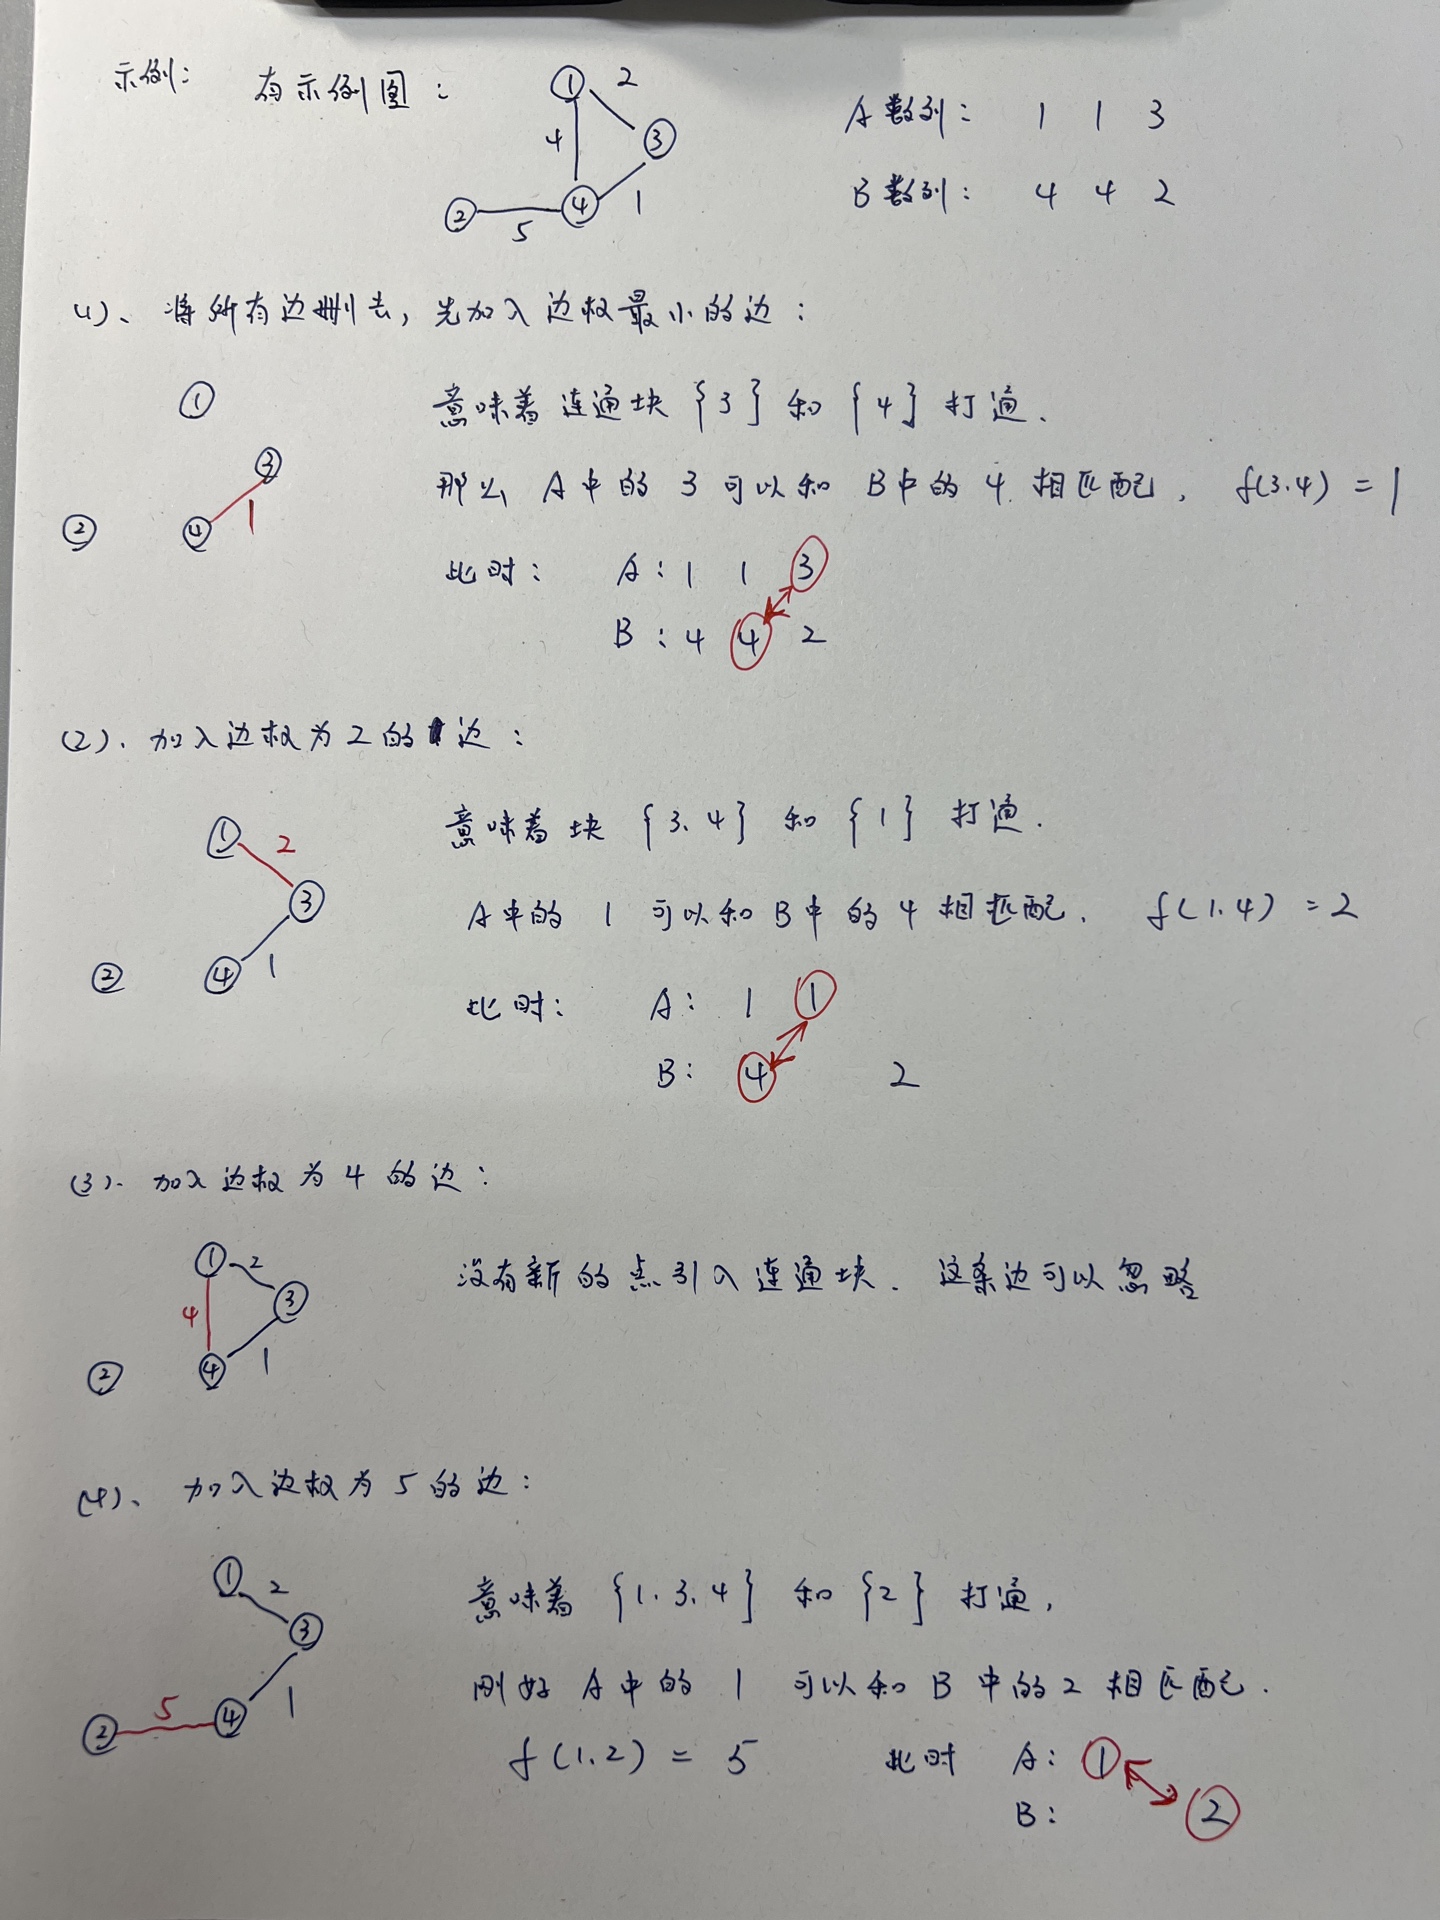 示例： 有示例图：
① 2
4 ③
② 5 ④ 1
A数列： 1 1 3
B数列： 4 4 2
(1)、将所有边删去，先加入边权最小的边：
①
③
② ④ 1
意味着 连通块 {3} 和 {4} 打通.
那么 A中的 3 可以和 B中的 4 相匹配, f(3.4) = 1
此时： A: 1 1 3
B: 4 4 2
(2)、加入边权为2的边：
① 2
③
② ④ 1
意味着块 {3.4} 和 {1} 打通.
A中的 1 可以和B中的4相匹配. f(1.4) = 2
此时： A: 1 1
B: 4 2
(3)、加入边权为4的边：
① 2
4 ③
② ④ 1
没有新的点引入连通块. 这条边可以忽略
(4)、加入边权为5的边：
① 2
③
② 5 ④ 1
意味着 {1.3.4} 和 {2} 打通,
刚好 A中的 1 可以和 B中的2相匹配.
f(1.2) = 5 此时 A: 1
B: 2